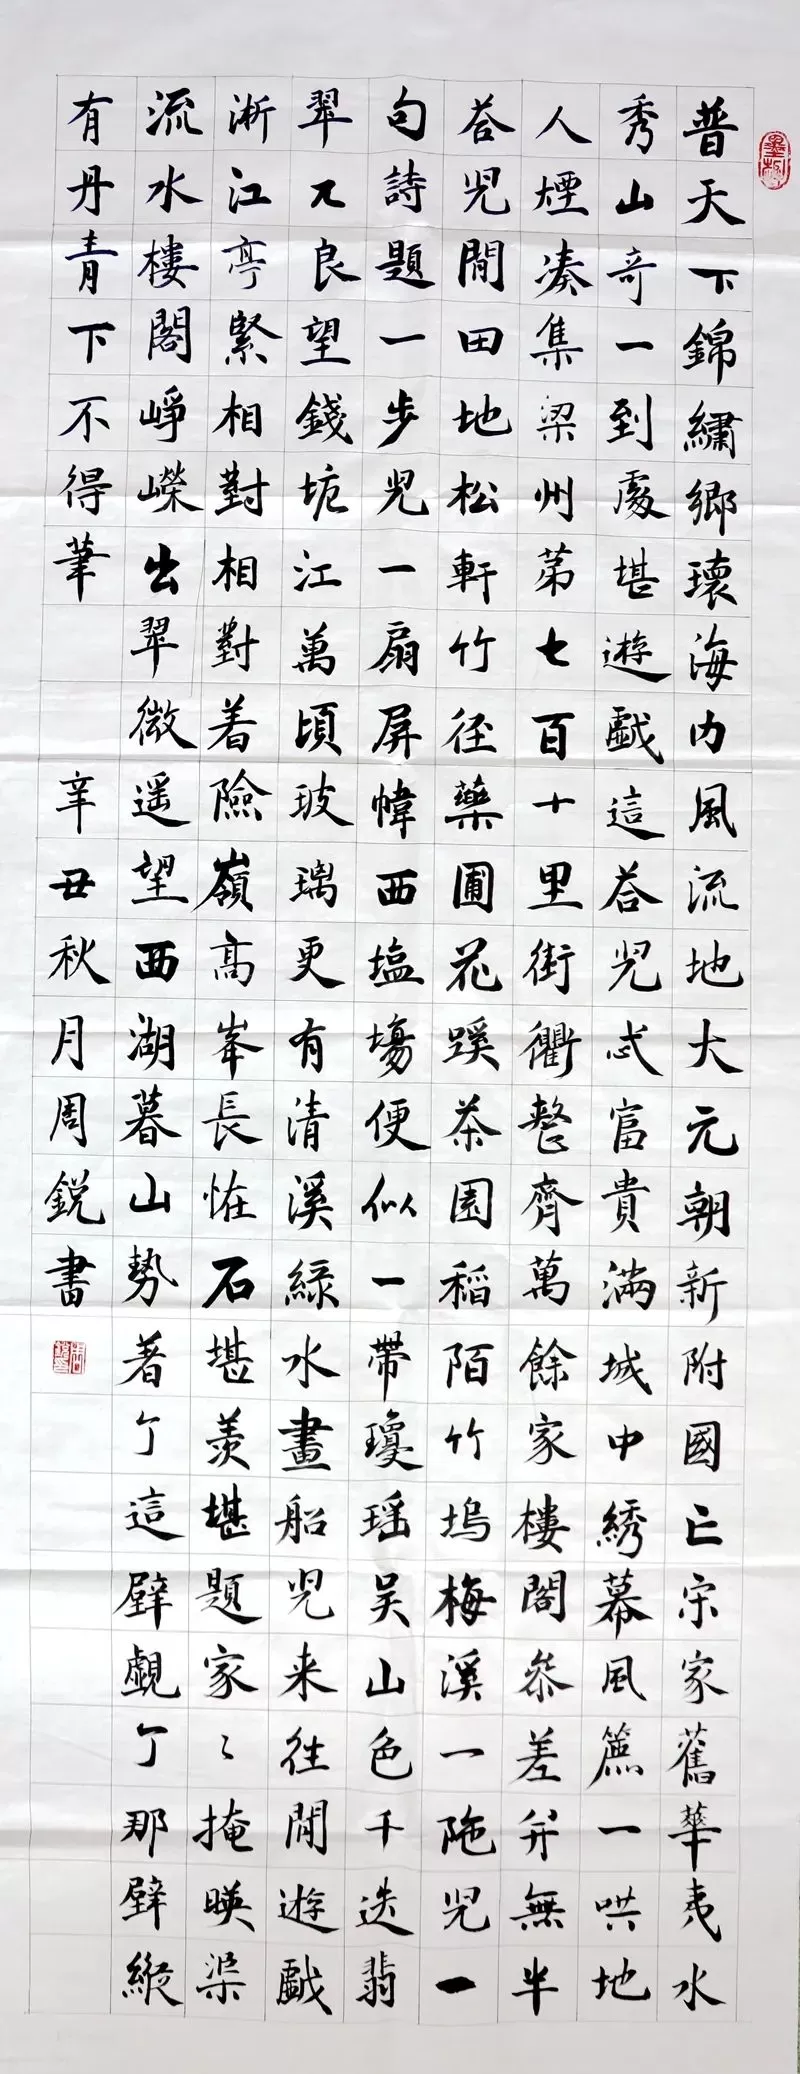 普天下錦繡鄉環海内風流地大元朝新附國亡宋家舊華夷水
秀山奇一到處堪遊戲這荅兒忒富貴滿城中綉幕風簾一哄地
人煙湊集梁州第七百十里街衢整齊萬餘家樓閣叅差并無半
荅兒閒田地松軒竹徑藥圃花蹊茶園稻陌竹塢梅溪一陁兒一
句詩題一步兒一扇屏幃西塩場便似一帶瓊瑶吴山色千迭翡
翠兀良望錢江萬頃玻璃更有清溪緑水畫船兒来往閒遊戲
淅江亭緊相對相對着險嶺高峯長恠石堪羨堪題家〻掩暎渠
流水樓閣崢嶸出翠微遥望西湖暮山勢著了這壁覷了那壁縱
有丹青下不得筆
辛丑秋月周銳書